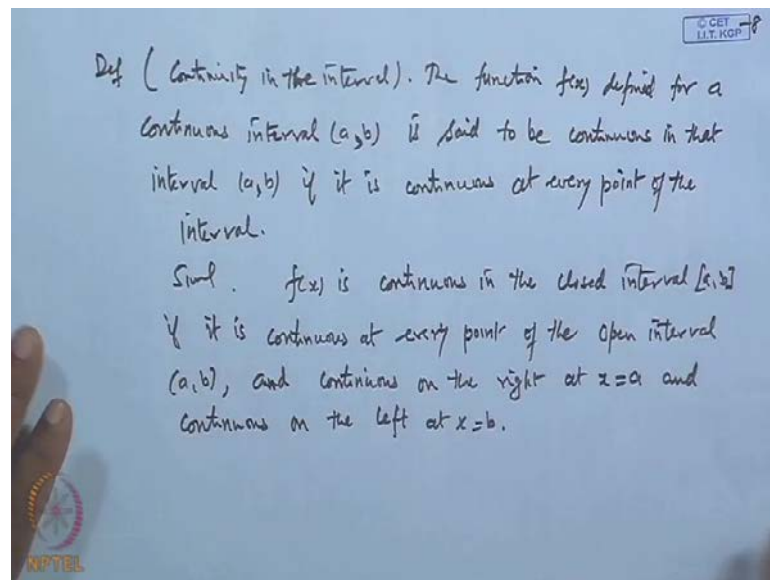 © CET
I.I.T. KGP
-8
Def ( Continuity in the interval). The function f(x) defined for a
continuous interval (a,b) is said to be continuous in that
interval (a,b) if it is continuous at every point of the
interval.
Siml. f(x) is continuous in the closed interval [a,b]
if it is continuous at every point of the open interval
(a,b), and continuous on the right at x=a and
continuous on the left at x=b.
NPTEL